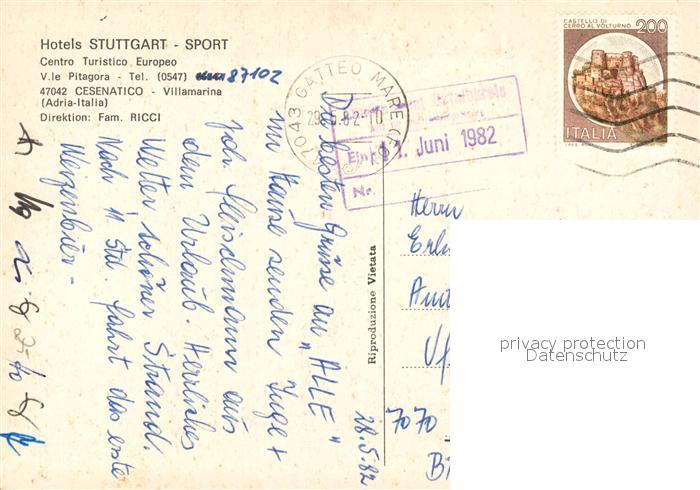 Hotels STUTTGART - SPORT
Centro Turistico Europeo
V.le Pitagora - Tel. (0547) 87102
47042 CESENATICO - Villamarina
(Adria-Italia)
Direktion: Fam. RICCI
CASTELLO DI
CERRO AL VOLTURNO
200
ITALIA
47043 GATTEO MARE
29.5.82-10
Eing. 11. Juni 1982
Nr.
Die besten Grüße an "ALLE"
im Hause senden Inge +
Joh. Fleischmann aus
dem Urlaub. Herrliches
Wetter schöner Strand.
Nach 11 Std Fahrt das erste
Weizenbier -
28.5.82
Riproduzione Vietata
Herrn
7070
privacy protection
Datenschutz